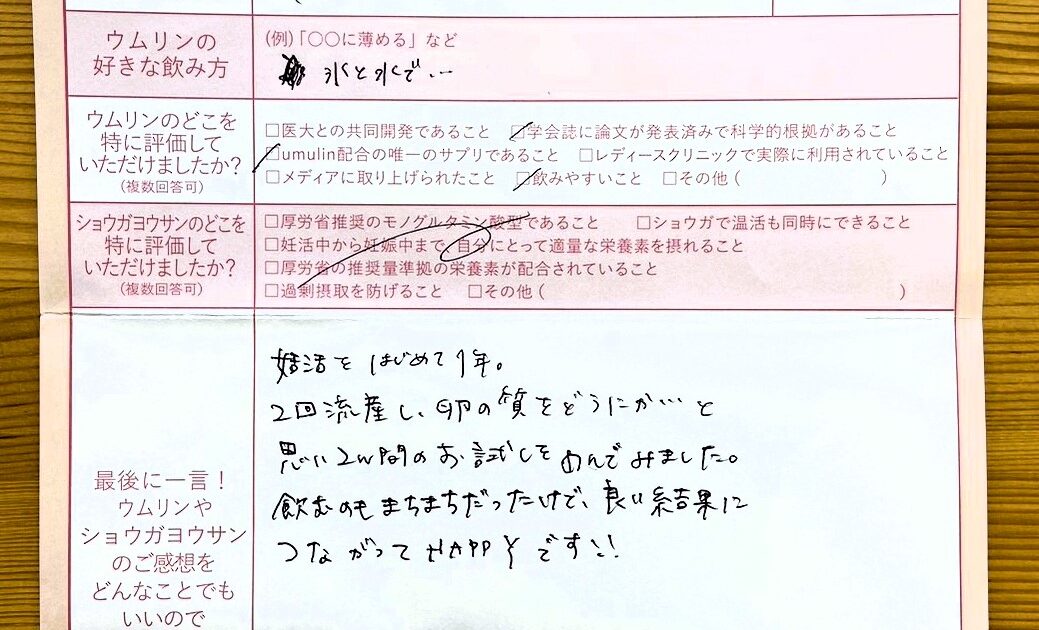 ウムリンの
好きな飲み方
(例)「〇〇に薄める」など
氷と水で…
ウムリンのどこを
特に評価して
いただけましたか?
(複数回答可)
□医大との共同開発であること □学会誌に論文が発表済みで科学的根拠があること
□umulin配合の唯一のサプリであること □レディースクリニックで実際に利用されていること
□メディアに取り上げられたこと □飲みやすいこと □その他 ( )
ショウガヨウサンのどこを
特に評価して
いただけましたか?
(複数回答可)
□厚労省推奨のモノグルタミン酸型であること □ショウガで温活も同時にできること
□妊活中から妊娠中まで、自分にとって適量な栄養素を摂れること
□厚労省の推奨量準拠の栄養素が配合されていること
□過剰摂取を防げること □その他 ( )
最後に一言!
ウムリンや
ショウガヨウサン
のご感想を
どんなことでも
いいので
妊活をはじめて1年。
2回流産し、卵の質をどうにか…と
思い2w間のお試しをのんでみました。
飲むのもまちまちだったけど、良い結果に
つながってHAPPYです!!